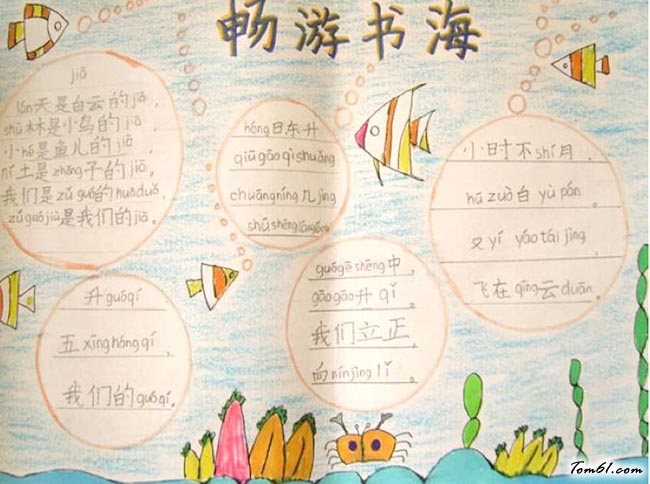 畅游书海
jiā
lán天是白云的jiā，
shù林是小鸟的jiā，
小hé是鱼儿的jiā，
ní土是zhǒng子的jiā。
我们是zǔ guó的huāduǒ，
zǔ guó jiù是我们的jiā。
hóng日东升
qiū gāo qì shuǎng
chuāng míng 几 jìng
shū shēng
小时不shí月，
hū zuò白 yù pán。
又 yí yáo tái jìng，
飞在 qīng 云 duān。
升 guó qí
五 xīng hóng qí，
我们的 guó qí。
guó gē shēng 中，
gāo gāo 升 qǐ。
我们立正，
向 nín jìng lǐ。
Tom61.com